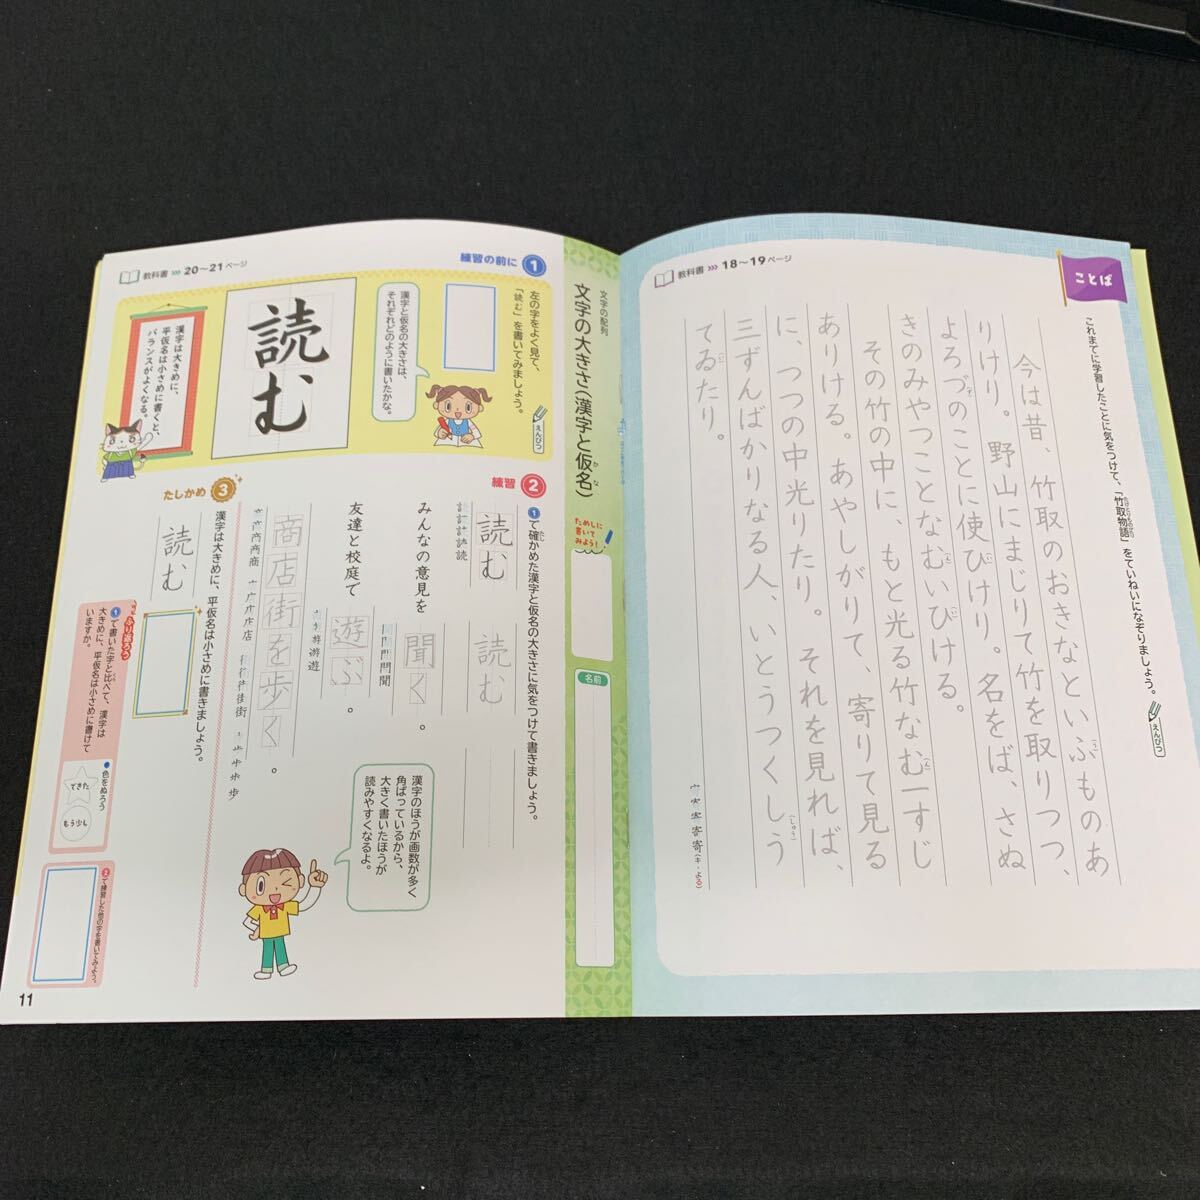 ことば
教科書 18〜19ページ
これまでに学習したことに気をつけて、「竹取物語」をていねいになぞりましょう。
えんぴつ
今は昔、竹取のおきなといふものあ
りけり。野山にまじりて竹を取りつつ、
よろづのことに使ひけり。名をば、さぬ
きのみやつことなむいひける。
その竹の中に、もと光る竹なむ一すじ
ありける。あやしがりて、寄りて見る
に、つつの中光りたり。それを見れば、
三ずんばかりなる人、いとうつくしう
てゐたり。
寄(キ・よる)
文字の配列
文字の大きさ(漢字と仮名)
ためしに
書いて
みよう!
名前
教科書 20〜21ページ
練習の前に 1
左の字をよく見て、
「読む」を書いてみましょう。
えんぴつ
漢字と仮名の大きさは、
それぞれどのように書いたかな。
読む
漢字は大きめに、
平仮名は小さめに書くと、
バランスがよくなる。
練習 2
1で確かめた漢字と仮名の大きさに気をつけて書きましょう。
読む
読む
みんなの意見を聞く。
友達と校庭で遊ぶ。
商店街を歩く。
漢字のほうが画数が多く
角ばっているから、
大きく書いたほうが
読みやすくなるよ。
たしかめ 3
漢字は大きめに、平仮名は小さめに書きましょう。
読む
ふり返ろう
1で書いた字と比べて、漢字は
大きめに、平仮名は小さめに書けて
いますか。
色をぬろう
できた
もう少し
2で練習した他の字を書いてみよう。
11